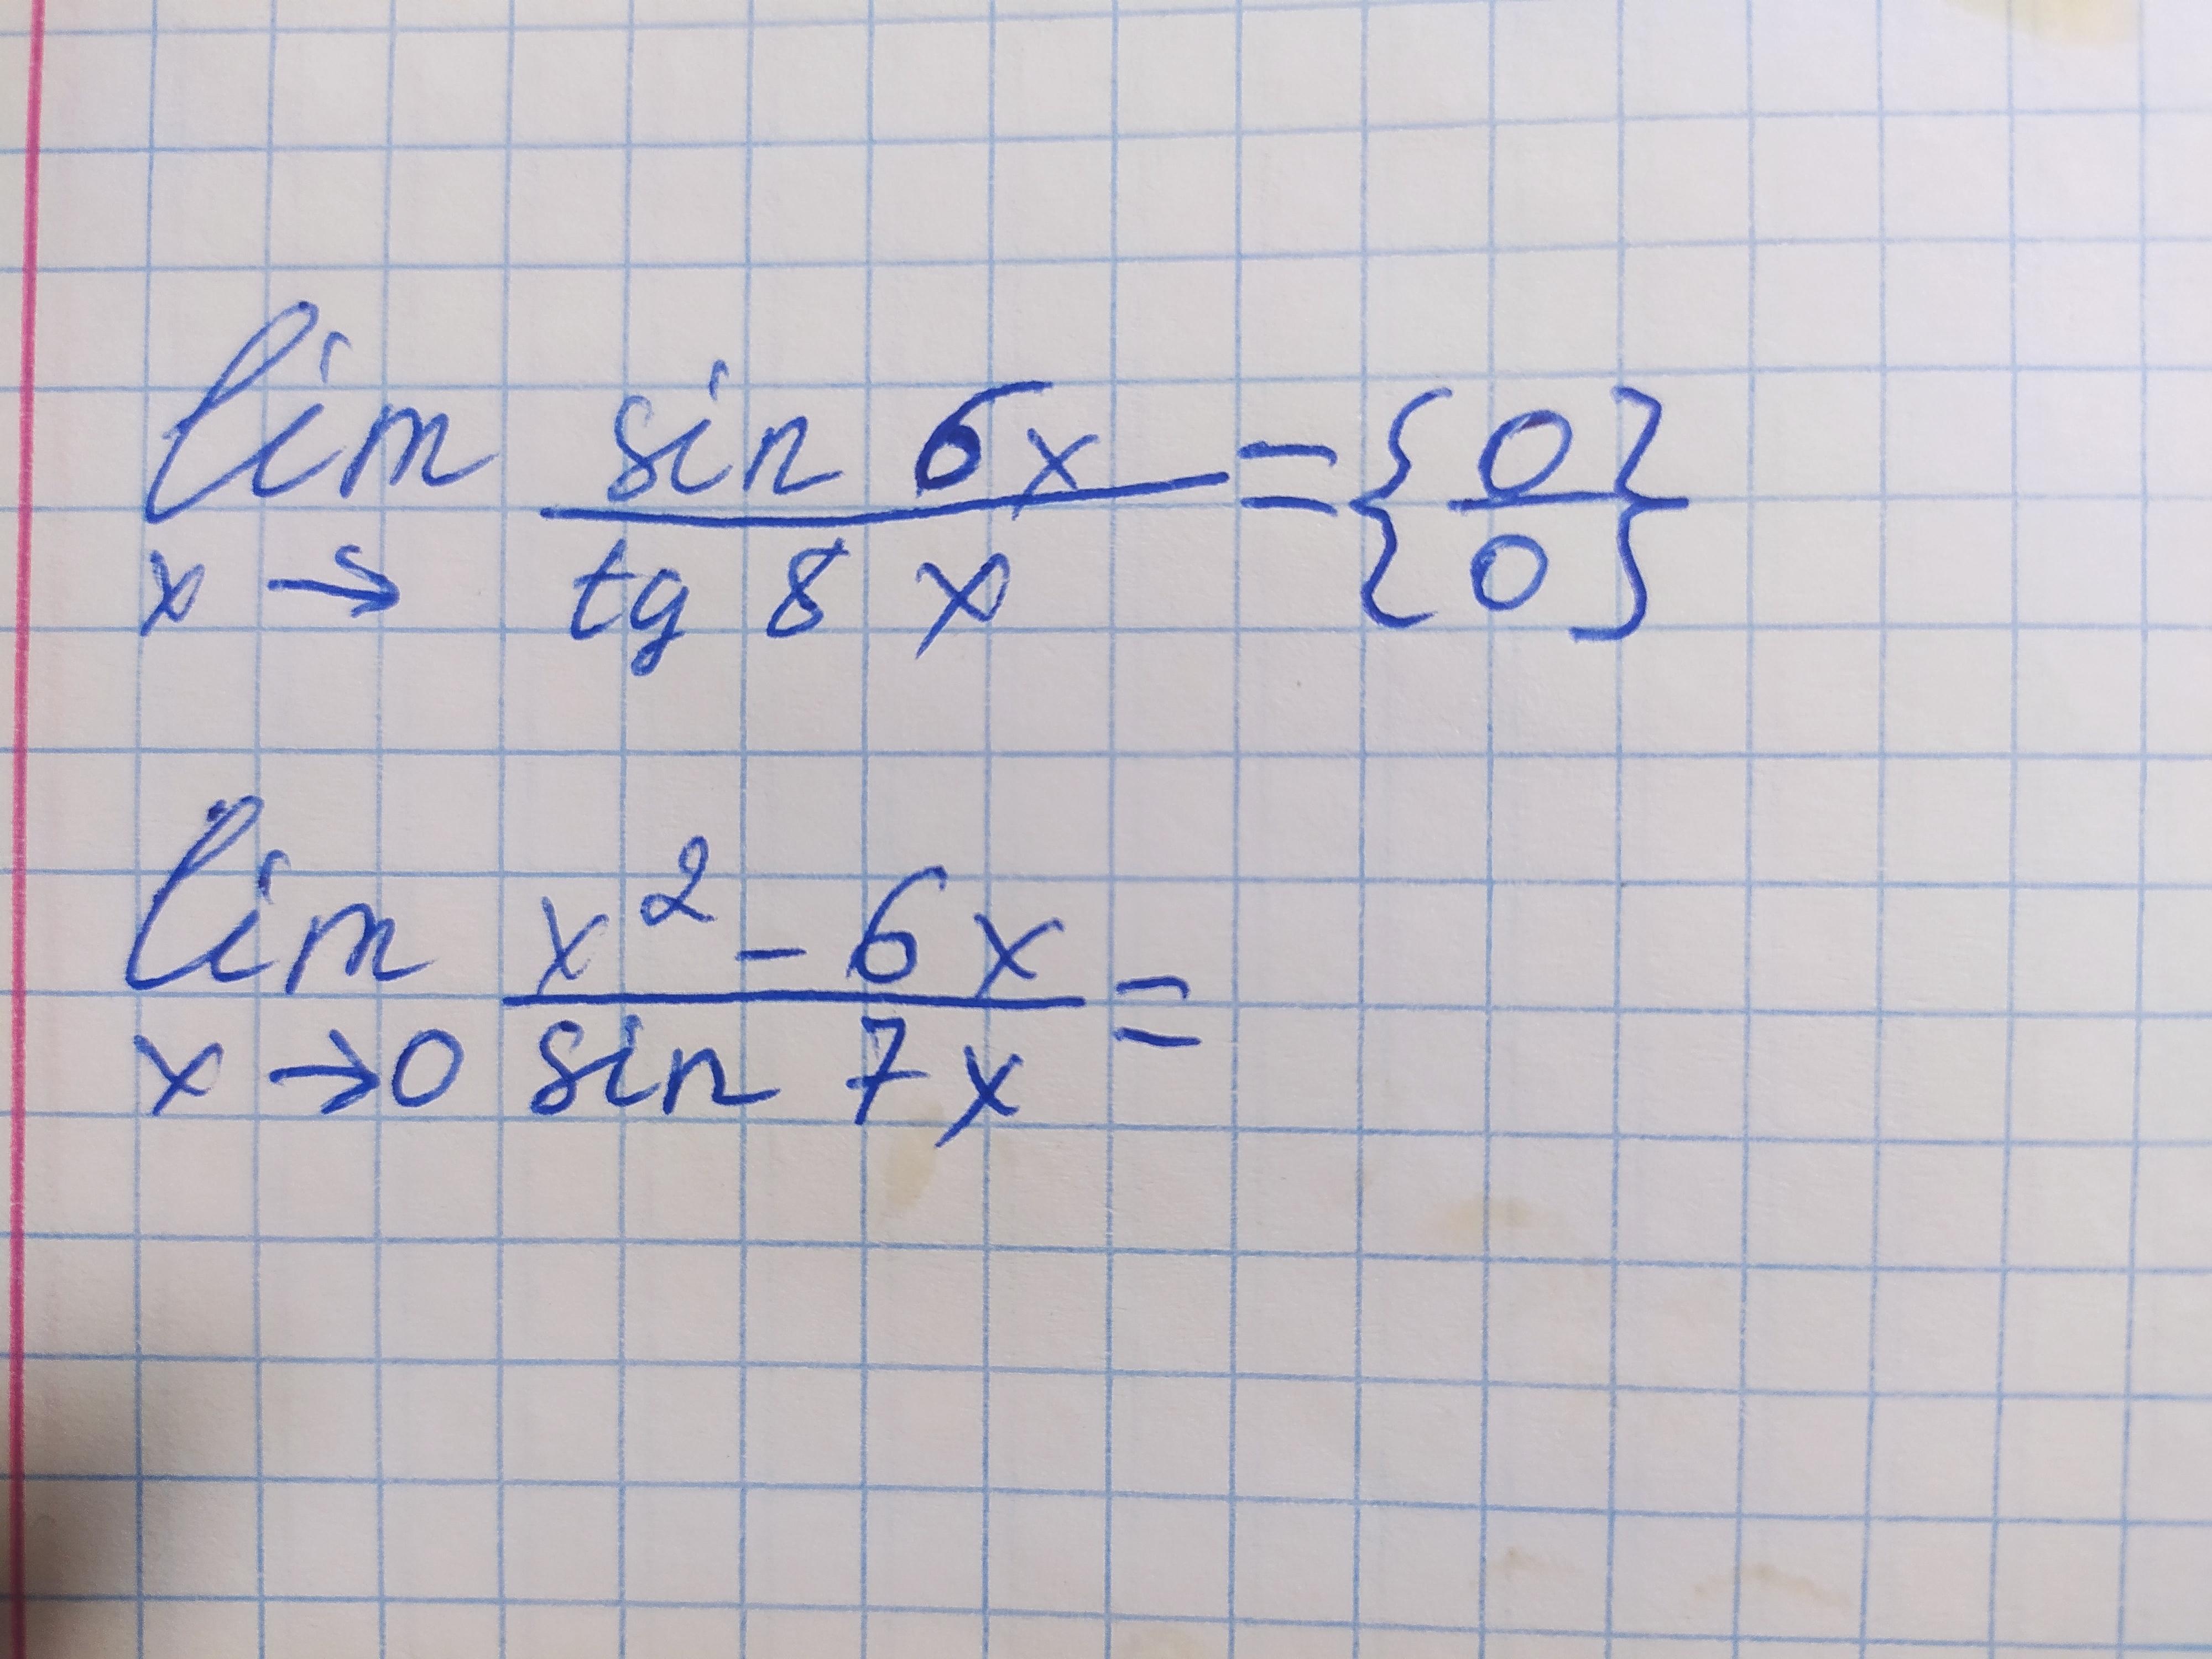 lim x→ sin 6x / tg 8 x = {0/0}
lim x→0 x² - 6x / sin 7x =